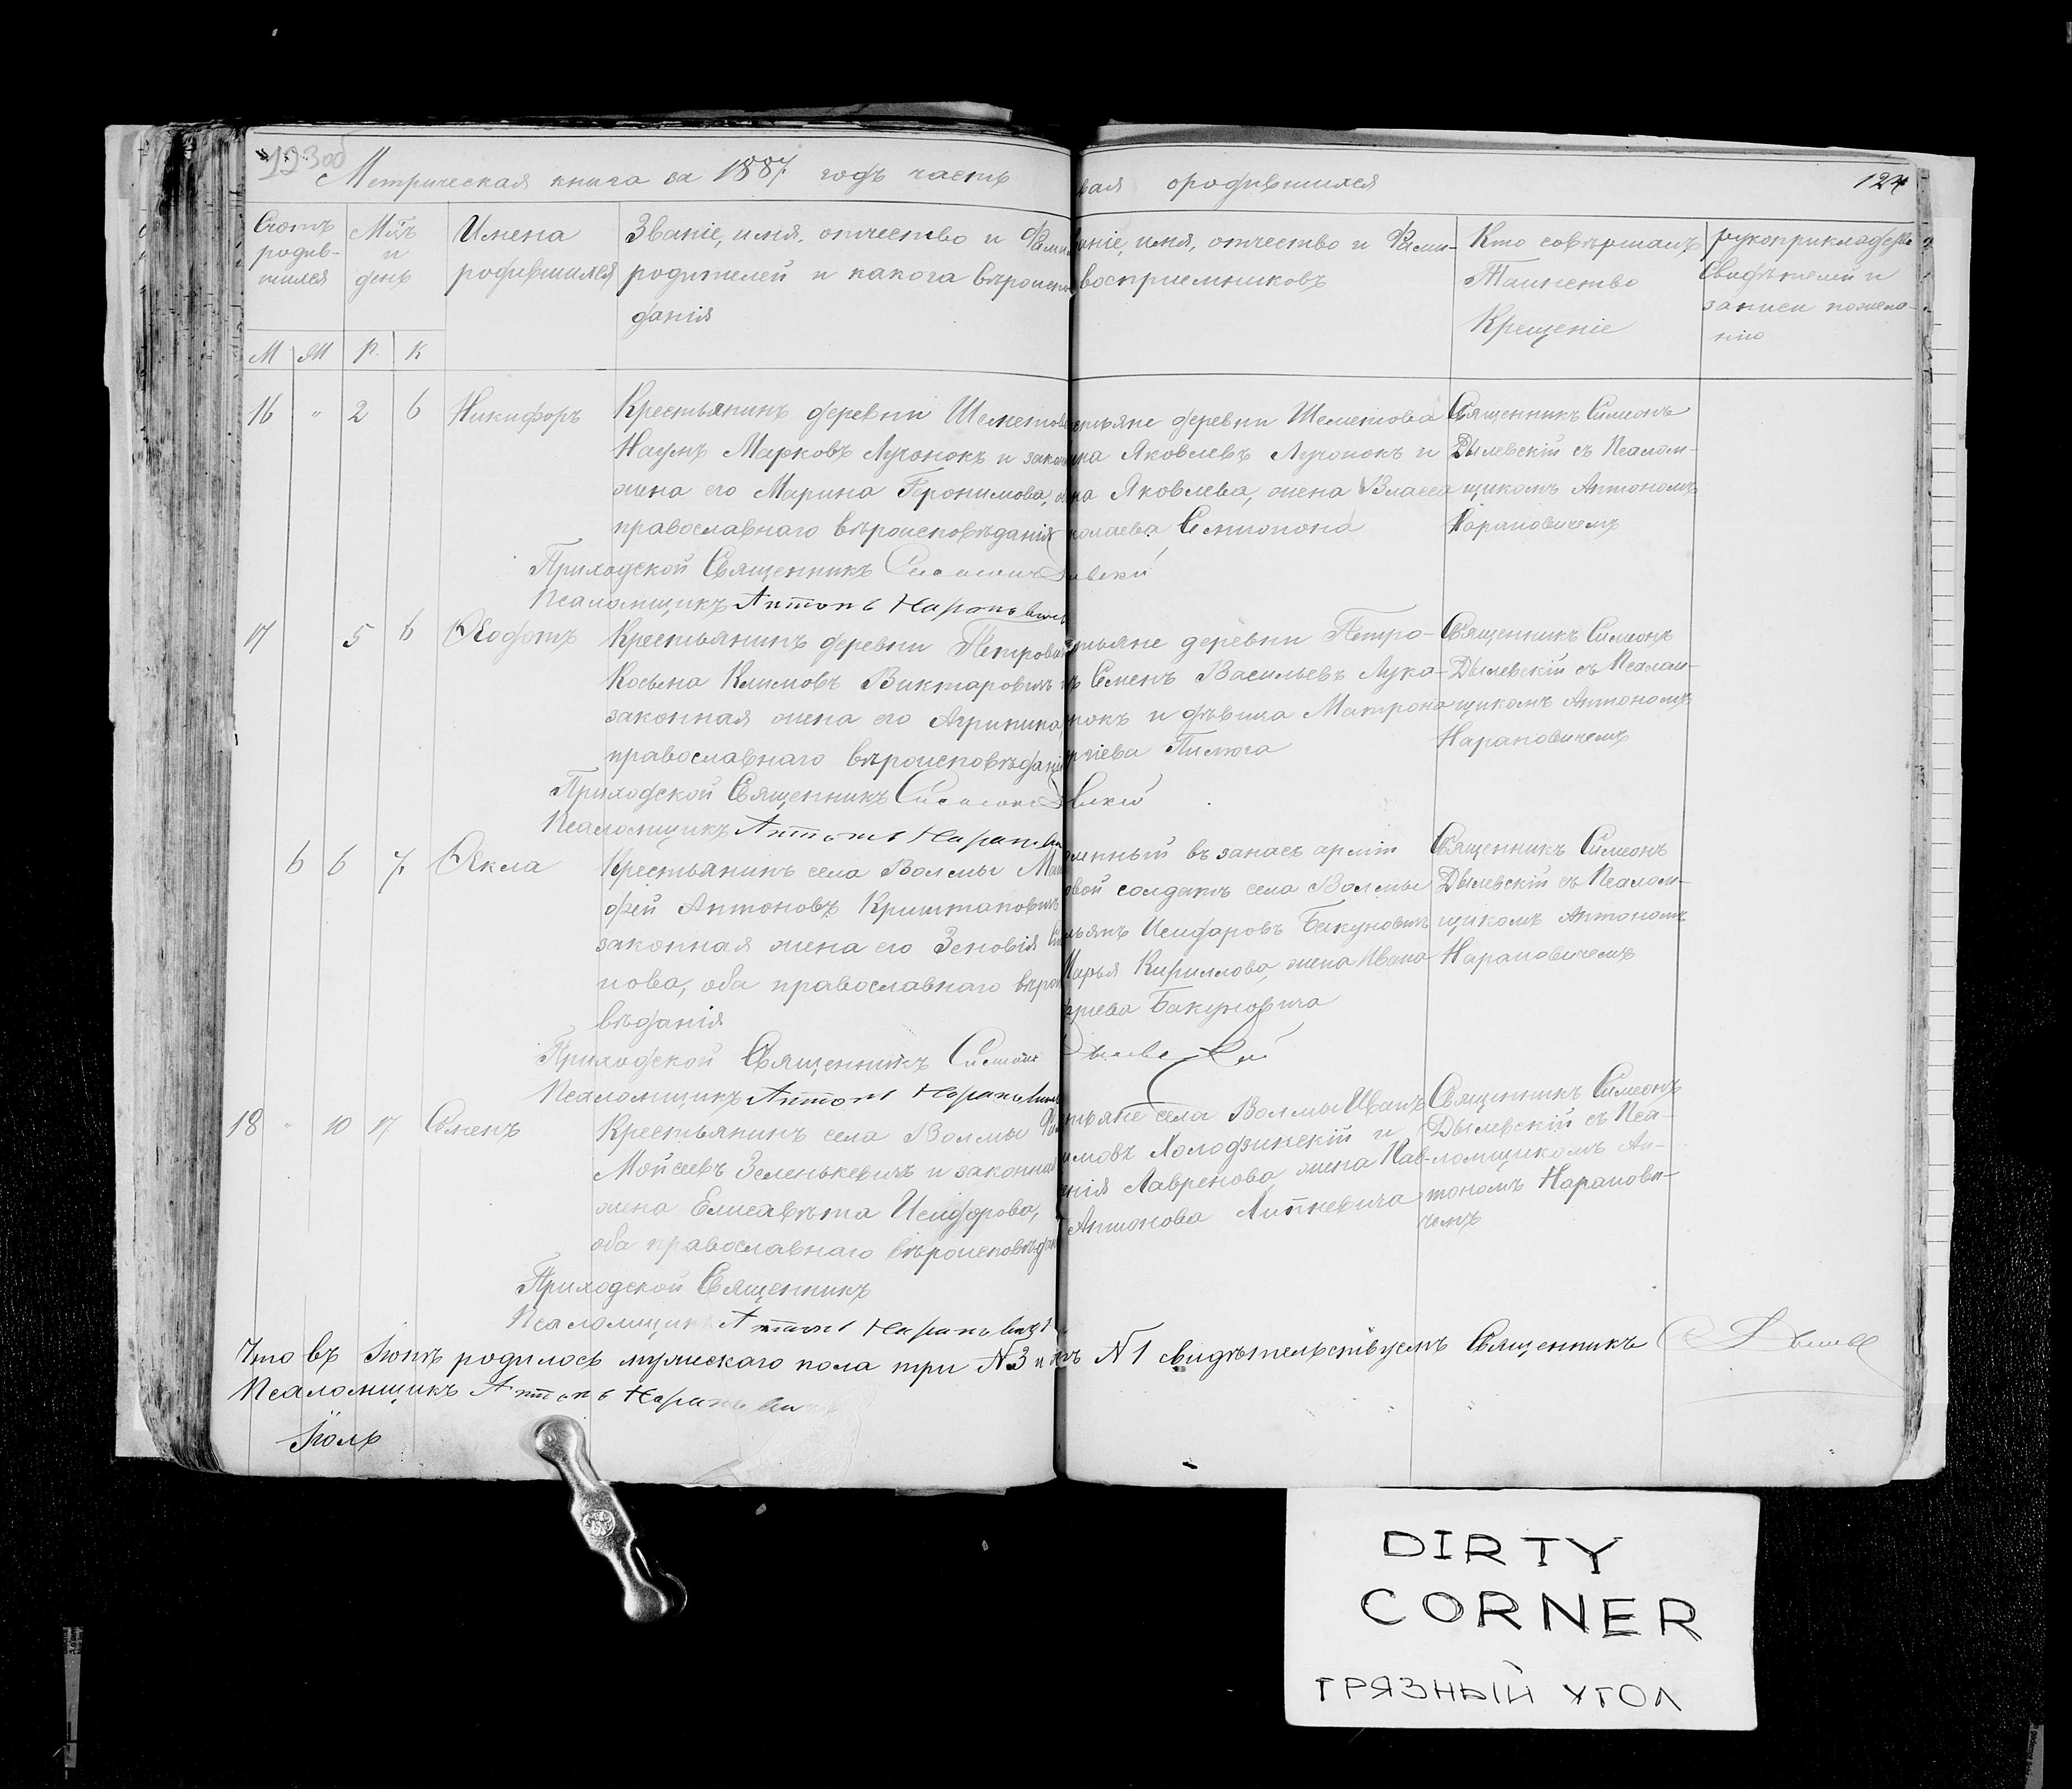 123об
Метрическая книга за 1887 годъ часть
вая ородившихся
124
Счотъ родив- шихся
Мцъ и день
Имена родившихся
Званіе, имя, отчество и Фами
родителей и какога вѣроиспо
данія
аніе, имя, отчество и Фами-
восприемниковъ
Кто совѣршалъ
Таинство
Крещеніе
рукоприкладства
Свидѣтелей и
записи пожела-
нію
М Ж Р. К
16 " 2 6 Никифоръ
Крестьянинъ деревни Шеметова
Наумъ Марковъ Лученокъ и закон
жена его Марина Геронимова,
православнаго вѣроисповѣданія
естьяне деревни Шеметова
Яковлевъ Лученокъ и
на Яковлева, жена Власса
колаева Семионока
Священникъ Симеонъ
Дылевскій съ Псалом-
щикомъ Антономъ
Нарановичемъ
Приходской Священникъ
Псаломщикъ Антонъ Нарановичъ
17 5 6 Ѳеодотъ
Крестьянинъ деревни Петрова
Косьма Климовъ Виктаровичъ
законная жена его Агрипина,
православнаго вѣроисповѣдані
стьяне деревни Петро-
Семенъ Васильевъ Лука-
нокъ и дѣвица Матрона
ргіева Пилюга
Священникъ Симеонъ
Дылевскій съ Псалом-
щикомъ Антономъ
Нарановичемъ
Приходской Священникъ
Псаломщикъ Антонъ Нарановичъ
6 6 7 Ѳекла
Крестьянинъ села Волмы Мат
фей Антоновъ Криштаповичъ
законная жена его Зеновія
нова, оба православнаго вѣрои
вѣданія
оленный въ запасъ арміи
овой солдатъ села Волмы
льянъ Исидаровъ Бакуновичъ
Марья Кириллова, жена Ивана
Бакуновича
Священникъ Симеонъ
Дылевскій съ Псалом-
щикомъ Антономъ
Нарановичемъ
Приходской Священникъ Симеонъ Дылевскій
Псаломщикъ Антонъ Нарановичъ
18 " 10 17 Семенъ
Крестьянинъ села Волмы
Мойсеевъ Зеленькевичъ и законная
жена Елисавѣта Исидорова,
оба православнаго вѣроисповѣдан
стьяне села Волмы Иванъ
имовъ Холодзинскій и
енія Лавренова, жена Пав-
Антонова Липкевича
Священникъ Симеонъ
Дылевскій съ Пса-
ломщикомъ Ан-
тономъ Нарановичемъ
Приходской Священникъ
Псаломщикъ Антонъ Нарановичъ
Что въ Іюнѣ родилось мужескаго пола три N3 и N1 свидѣтельствуемъ Священникъ
Псаломщикъ Антонъ Нарановичъ
Іюль
DIRTY
CORNER
ГРЯЗНЫЙ УГОЛ